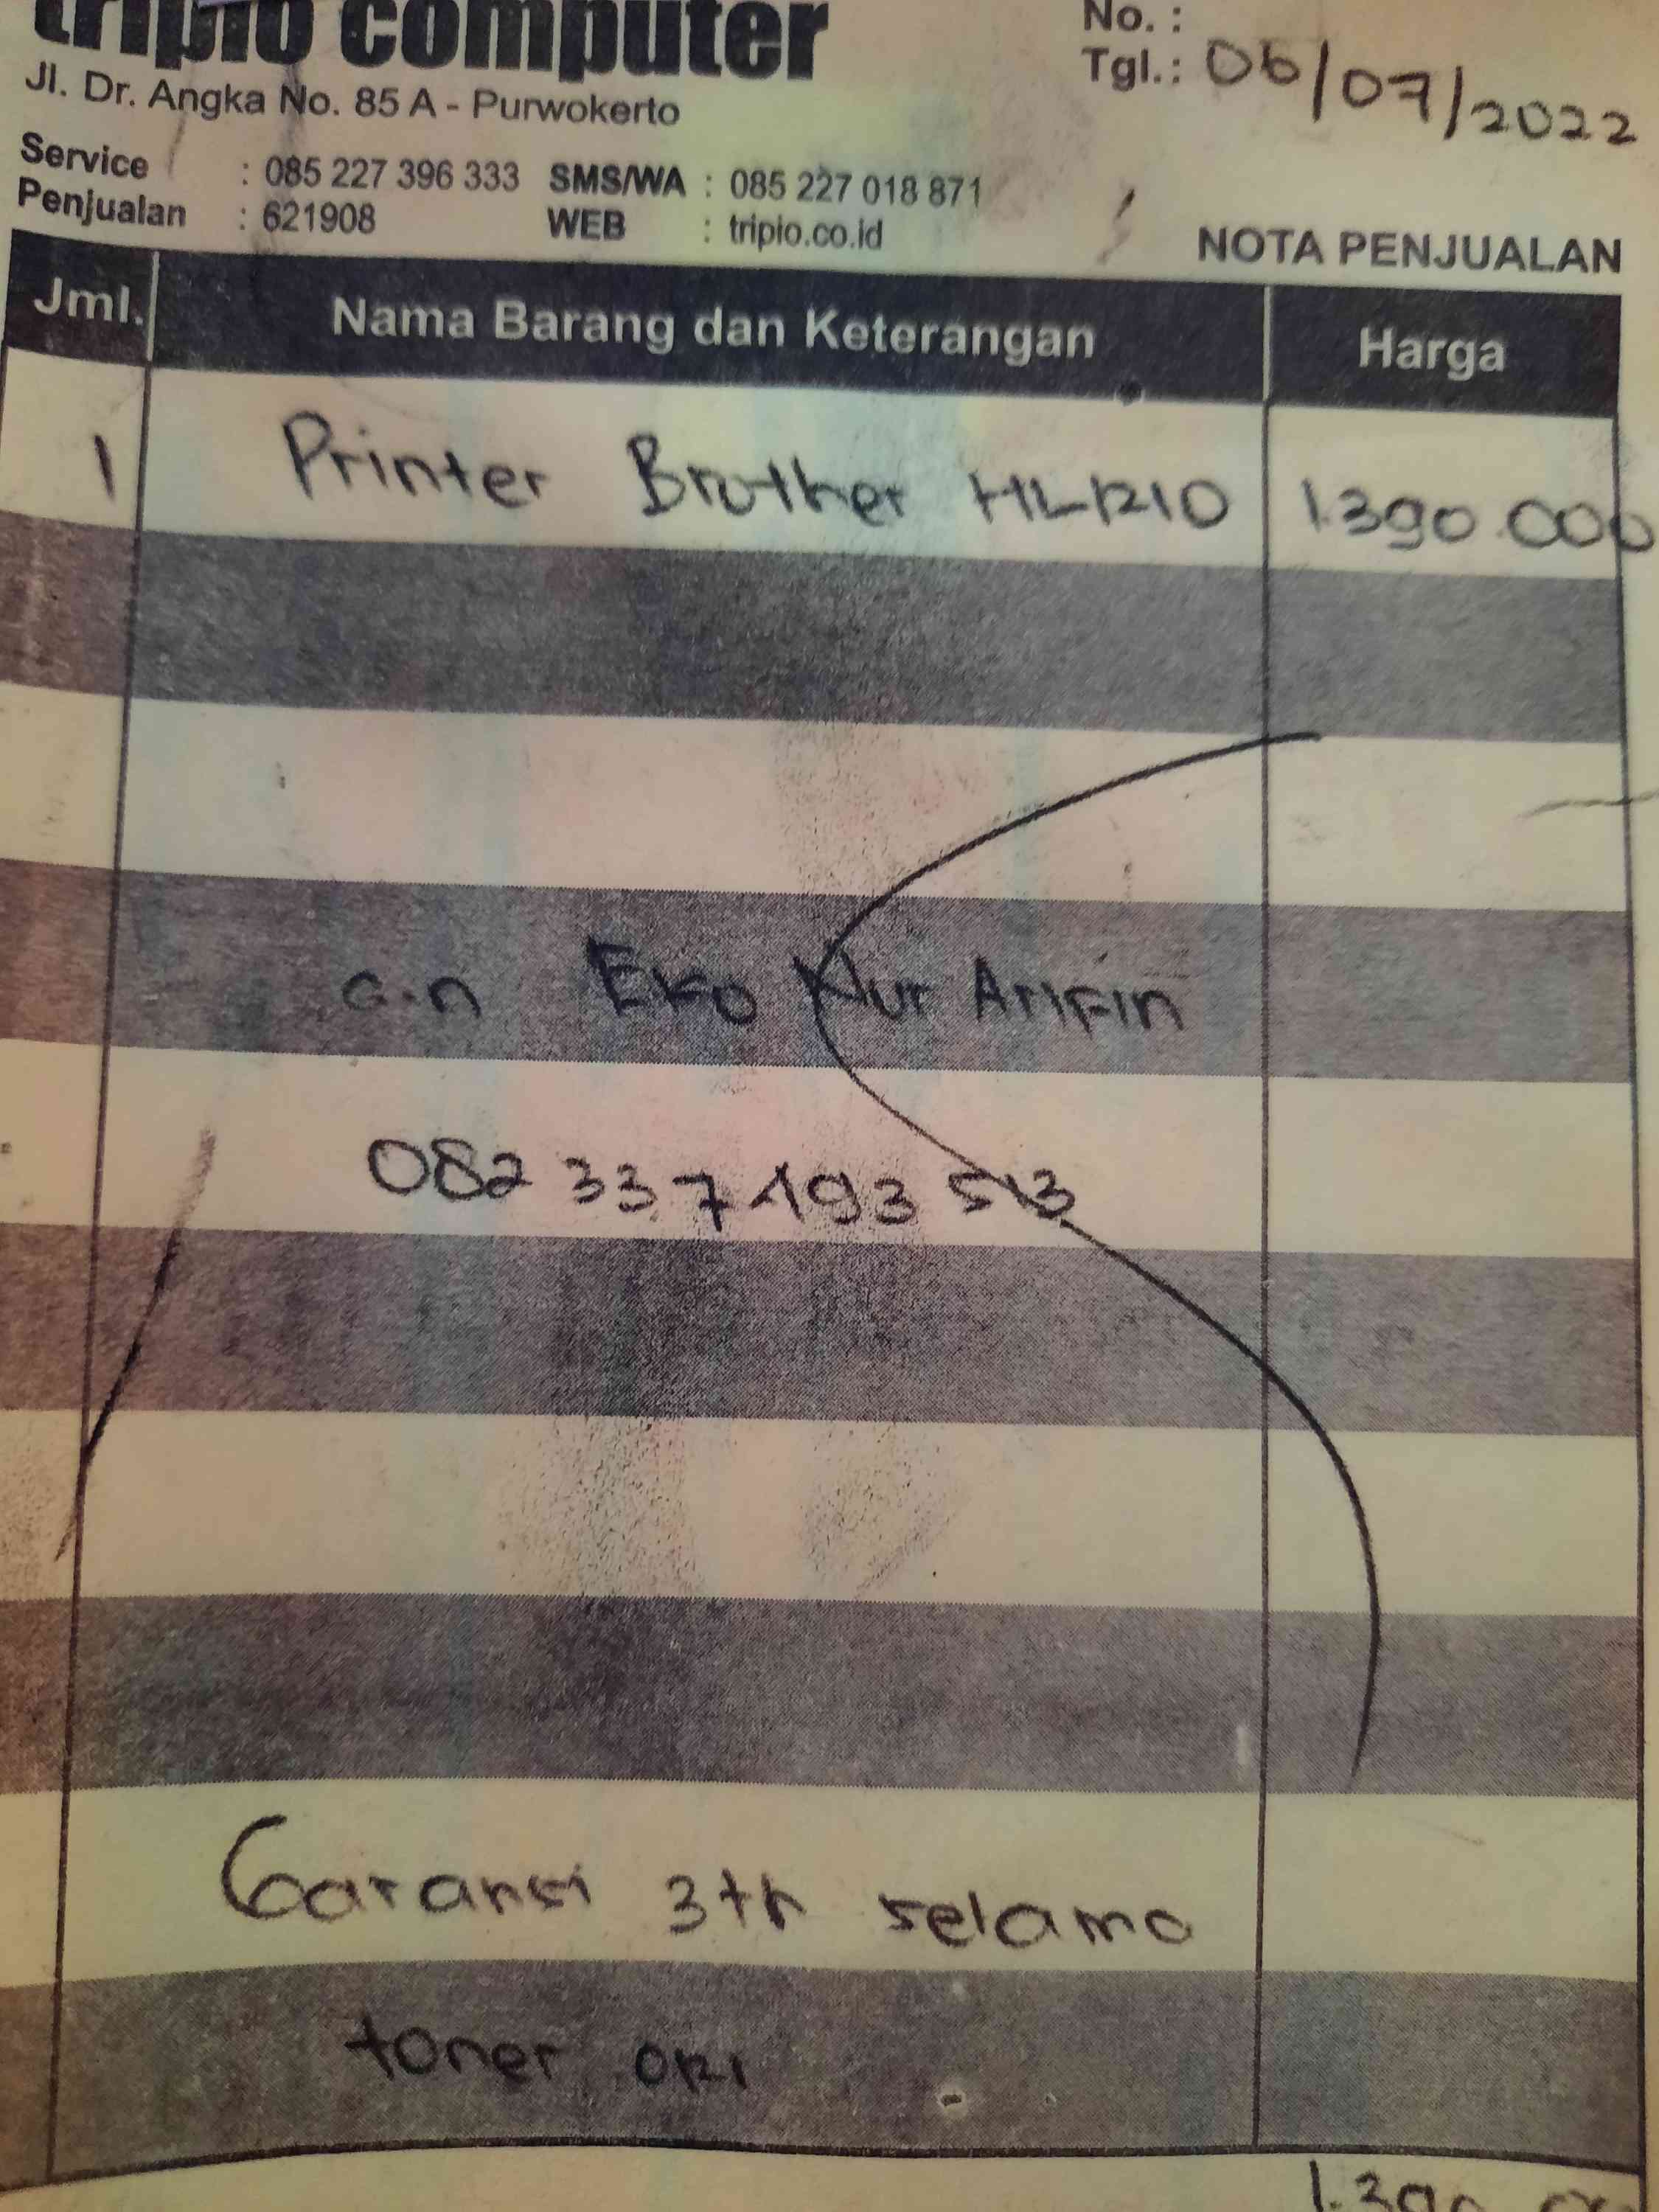 tripio computer
No. :
Jl. Dr. Angka No. 85 A - Purwokerto
Tgl.: 06/07/2022
Service : 085 227 396 333 SMS/WA : 085 227 018 871
Penjualan : 621908 WEB : tripio.co.id
NOTA PENJUALAN
Jml. Nama Barang dan Keterangan Harga
1 Printer Brother HL1210 1.390.000
a.n Eko Nur Arifin
082 337 193 513
Garansi 3th selama
toner ori